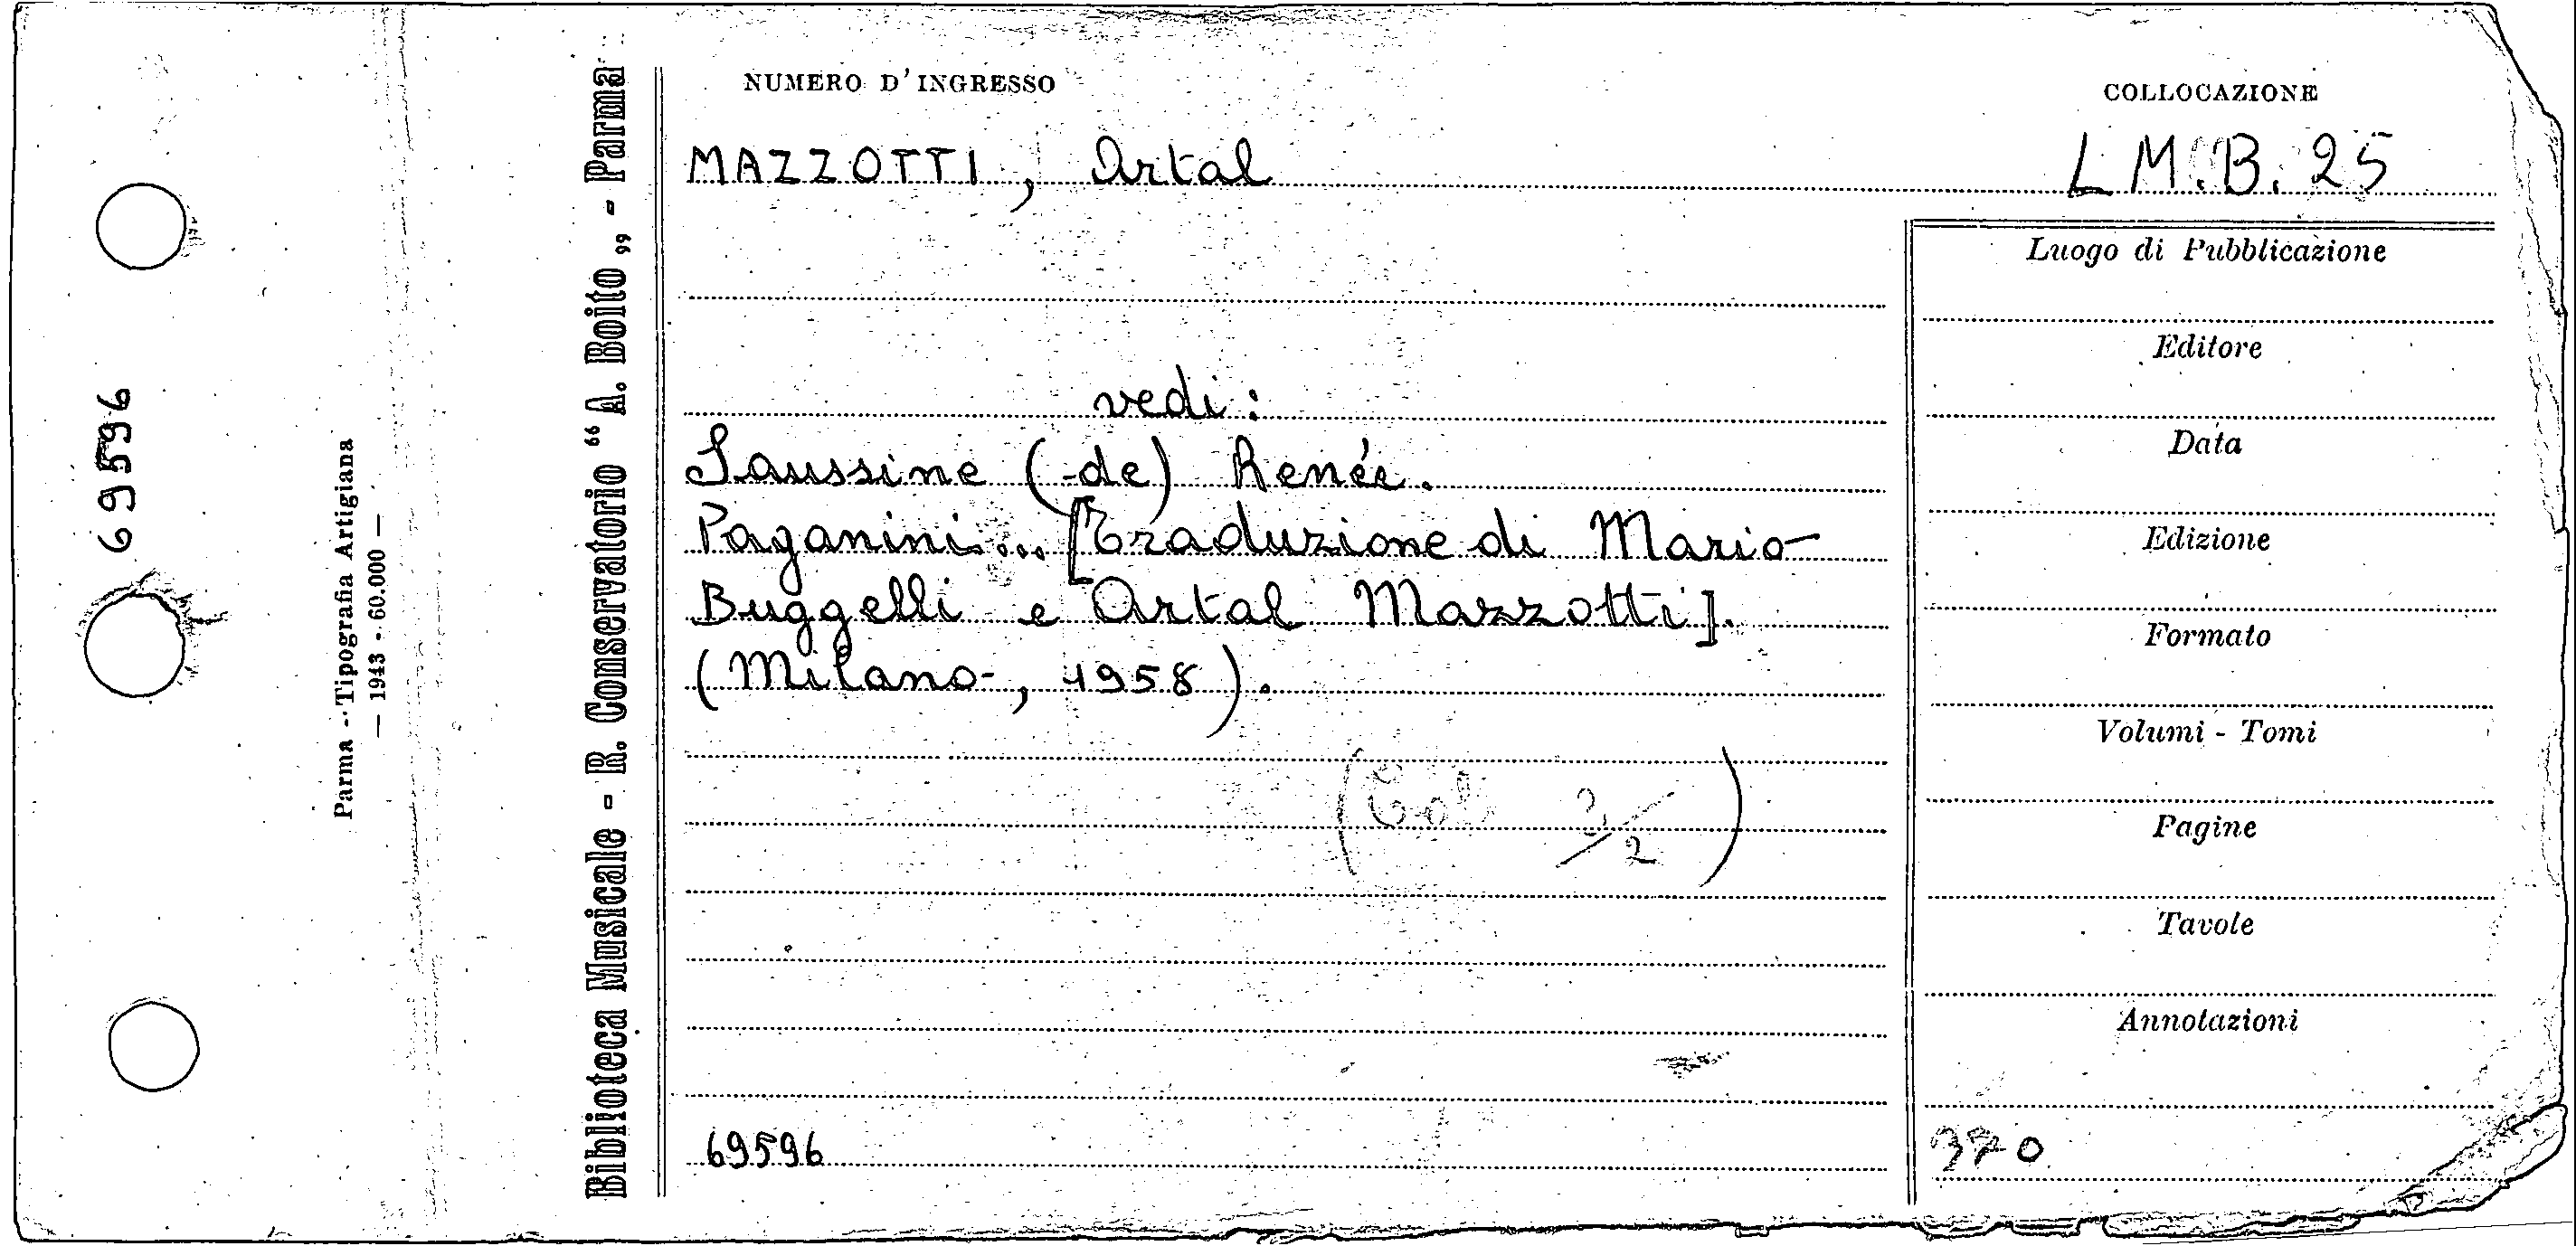 NUMERO D'INGRESSO
COLLOCAZIONE
MAZZOTTI, Artal
L M.B. 25
vedi:
Saussine (de) Renée.
Paganini... [Traduzione di Mario
Buggelli e Artal Mazzotti].
(Milano, 1958).
3/2
69596
Luogo di Pubblicazione
Editore
Data
Edizione
Formato
Volumi - Tomi
Pagine
Tavole
Annotazioni
370
Biblioteca Musicale - R. Conservatorio “A. Boito„ - Parma
Parma - Tipografia Artigiana
— 1943 - 60.000 —
69596